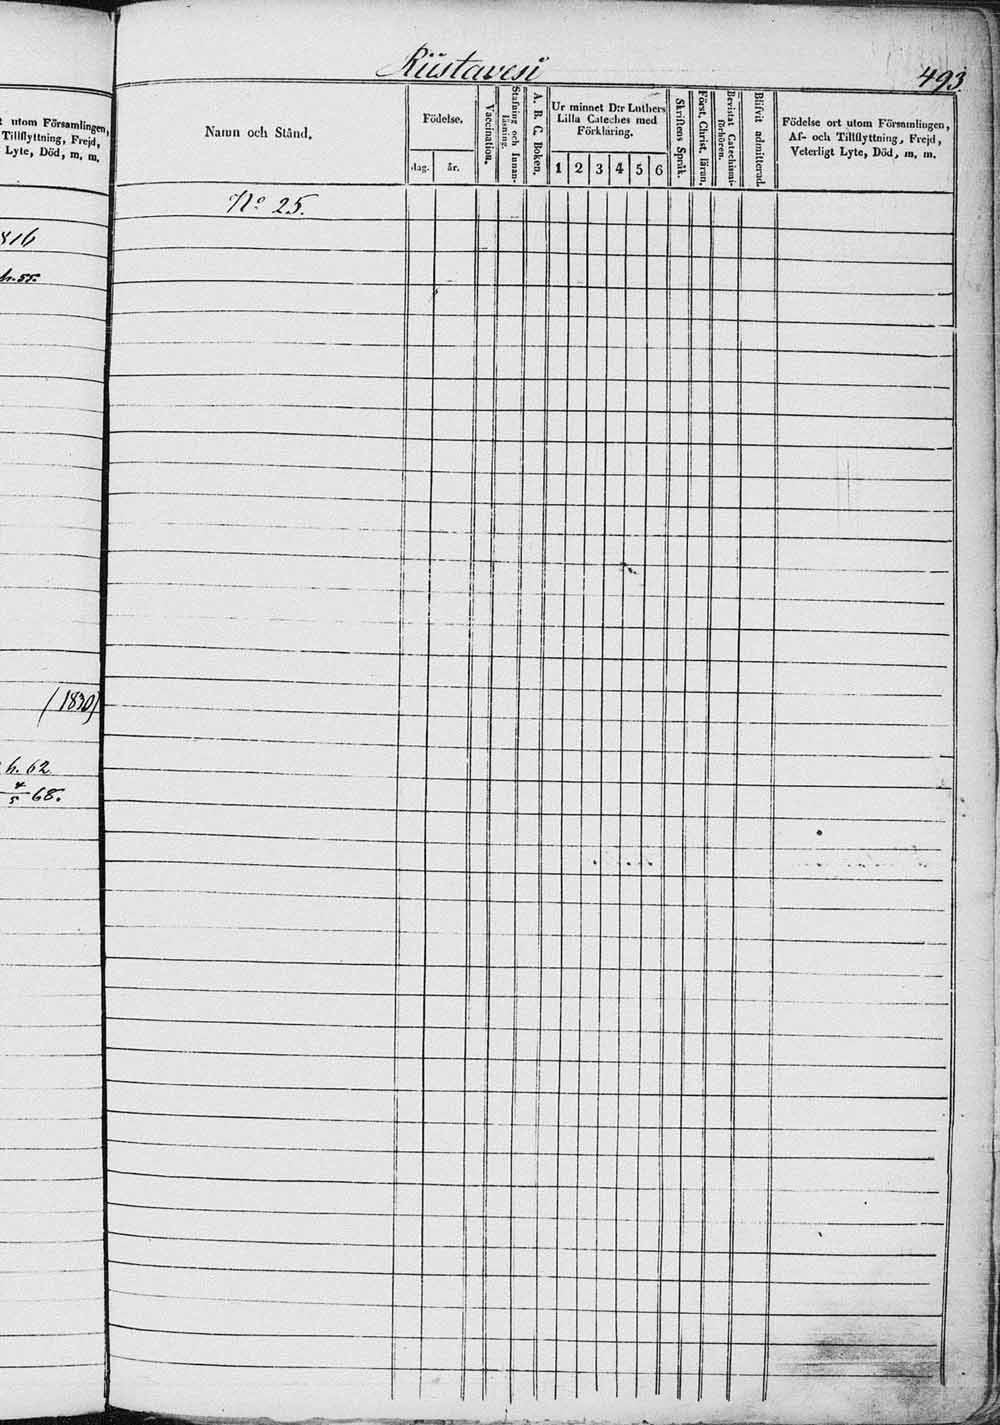 Riistavesi
493.
t utom Församlingen,
Tillflyttning, Frejd,
Lyte, Död, m. m.
816
h. 55.
(1830)
h. 62
4/5 68.
Namn och Stånd.
Födelse.
dag.
år.
Vaccination.
Stafning och Innan-
läsning.
A. B. C. Boken.
Ur minnet D:r Luthers
Lilla Cateches med
Förklaring.
1 2 3 4 5 6
Skriftens Språk.
Först. Christ. läran.
Bevistat Catechismi-
förhören.
Blifvit admitterad.
Födelse ort utom Församlingen,
Af- och Tillflyttning, Frejd,
Veterligt Lyte, Död, m. m.
No 25.